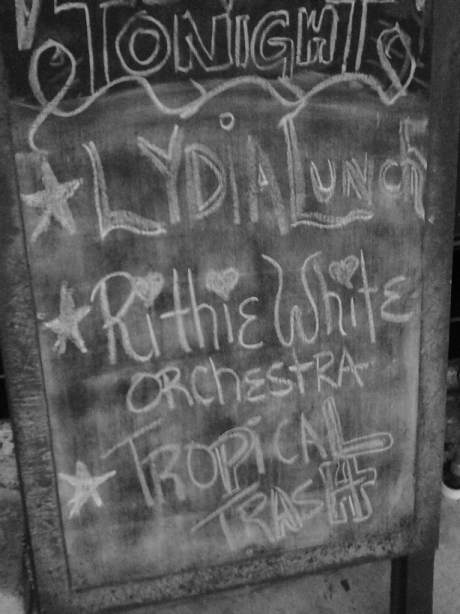 TONIGHT
LYDIA LUNCH
Rithie White
ORCHESTRA
TROPICAL
TRASH